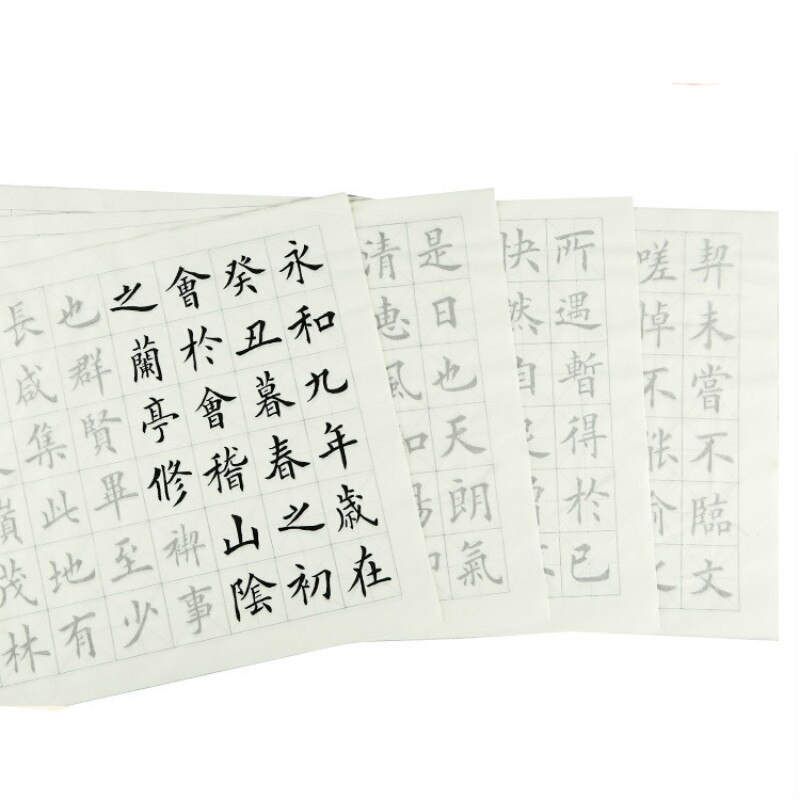 永和九年歲在
癸丑暮春之初
會於會稽山陰
之蘭亭修禊事
也群賢畢至少
長咸集此地有
嶺茂林
是日也天朗氣
清惠風和
所遇暫得於已
快然自足
契未嘗不臨文
嗟悼不能喻之